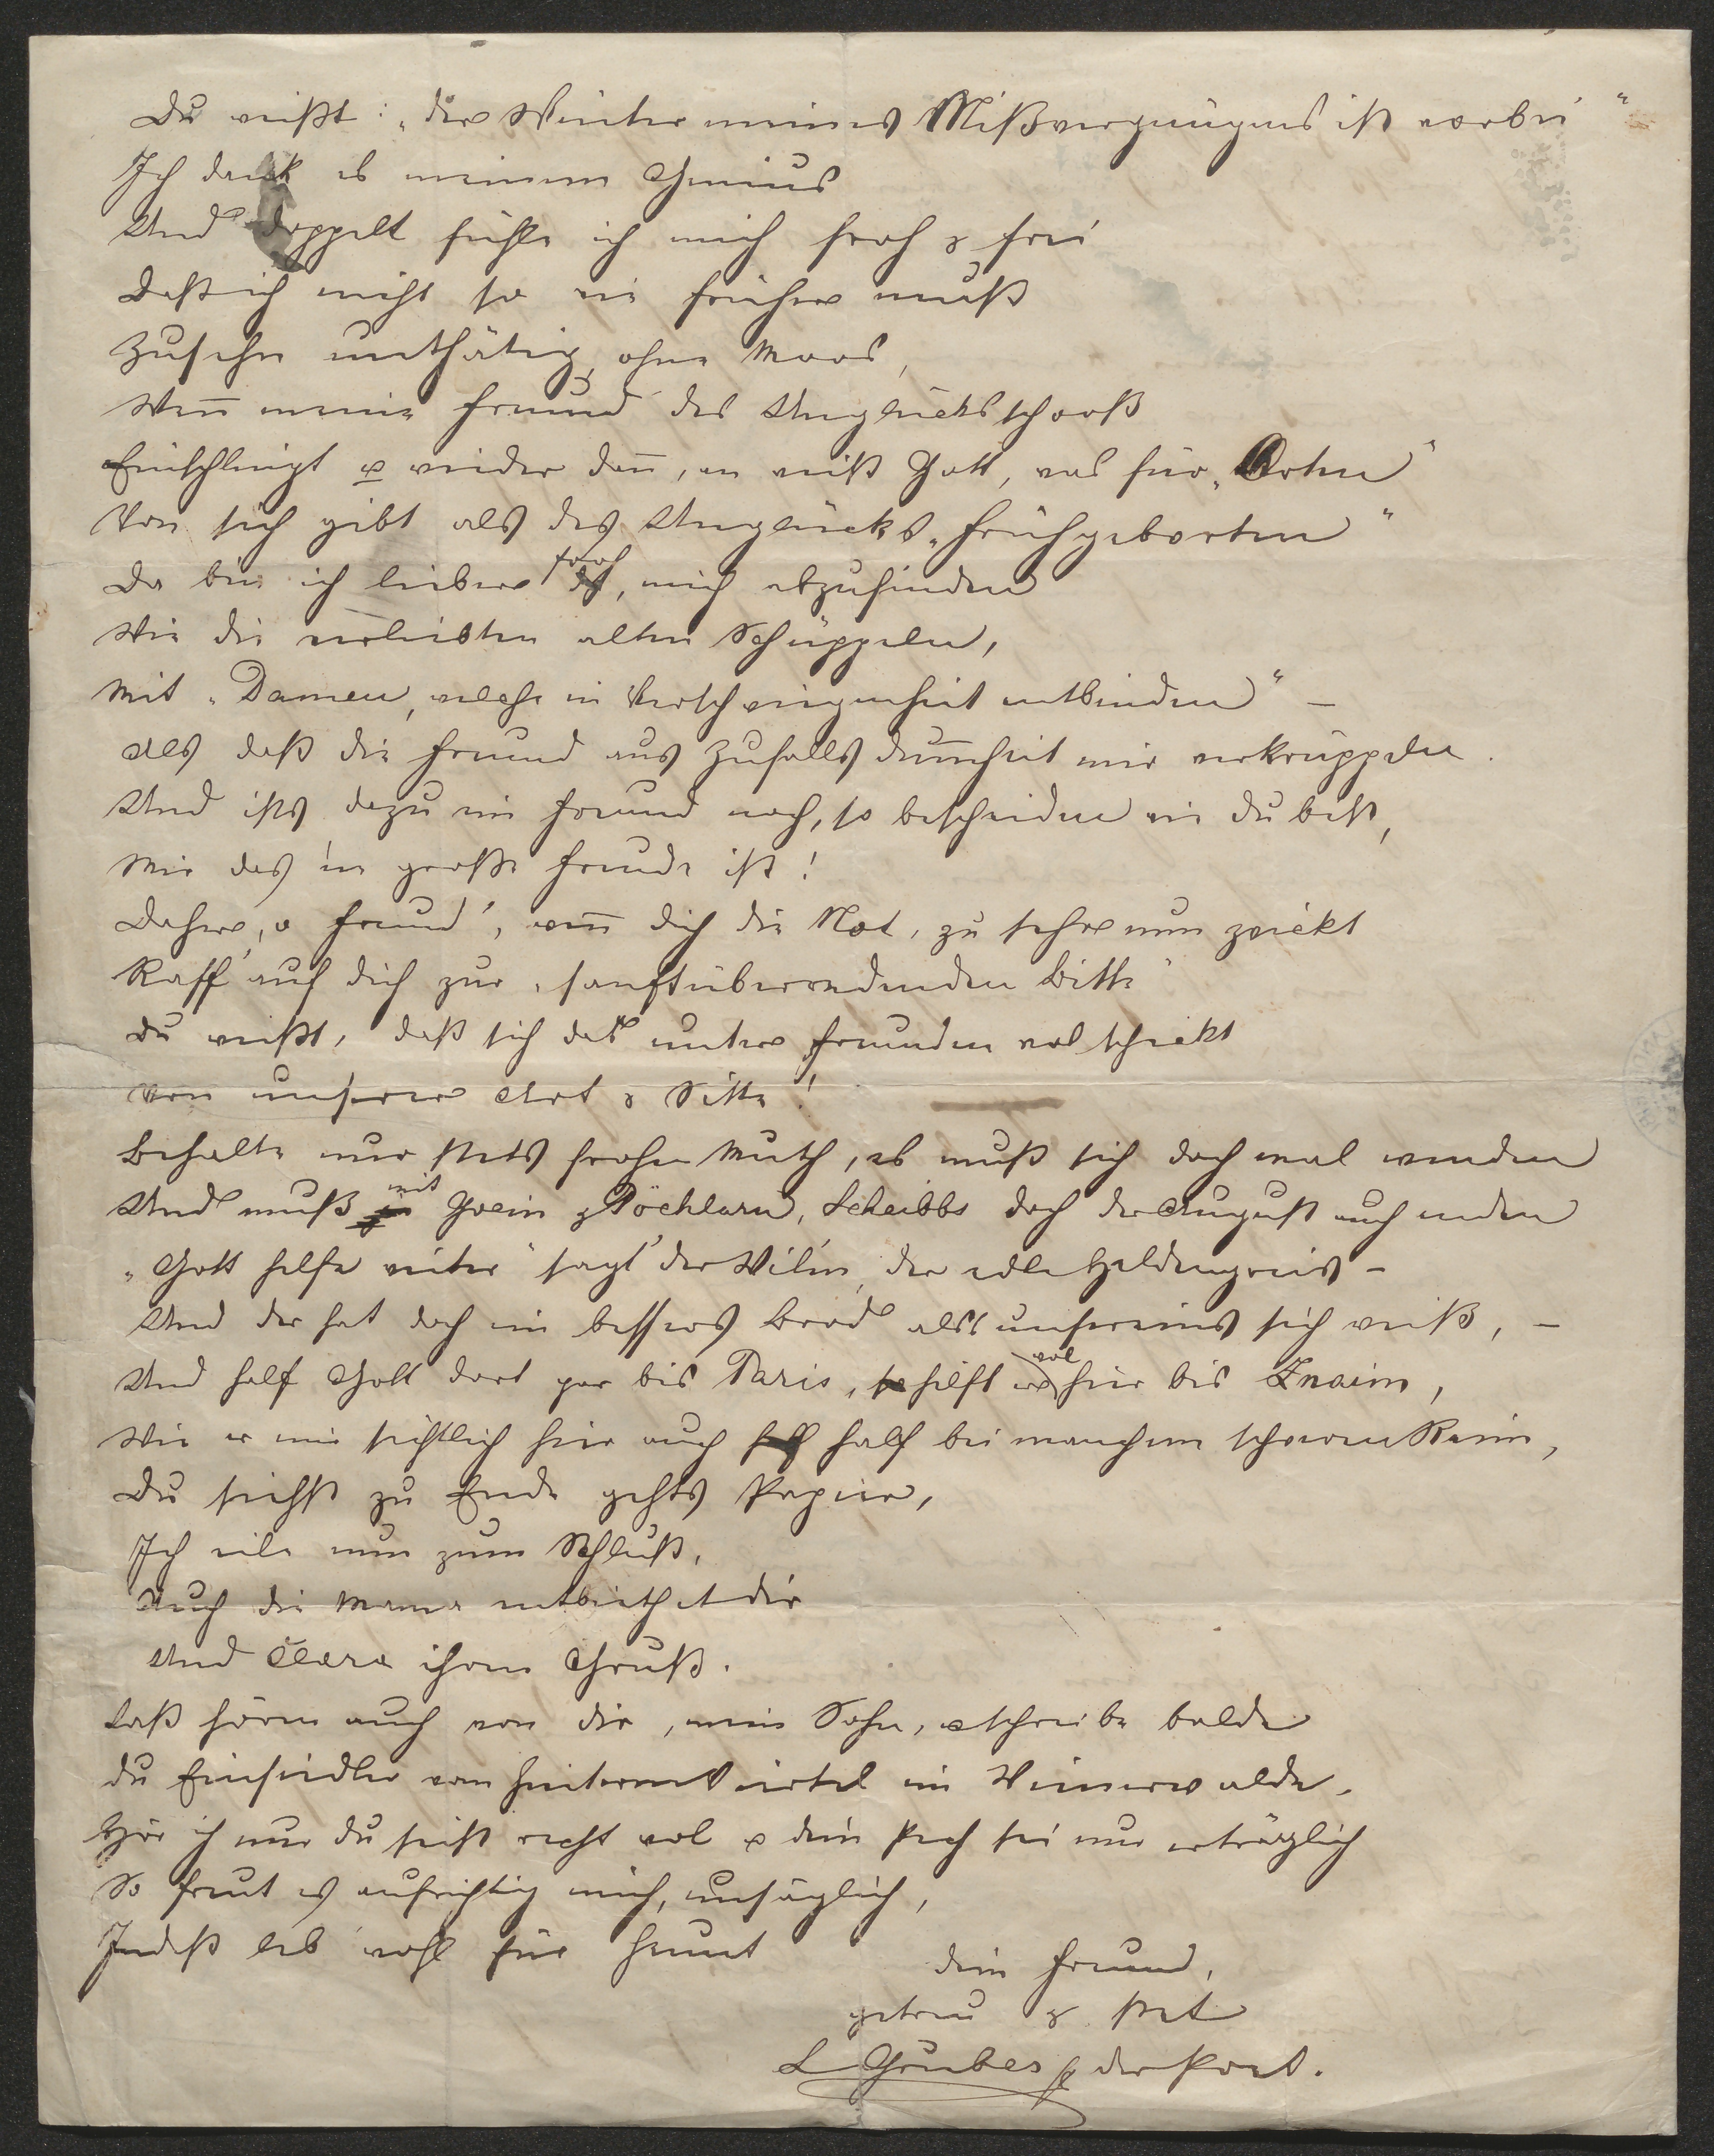 Du weißt: „der Winter meines Mißvergnügens ist vorbei“
Ich dank es meinem Genius
Und doppelt fühle ich mich froh & frei
Daß ich nicht so wie früher muß
Zusehn unthätig, ohne Moos,
Weñ meine Freund' des Unglücks schooß
Einschlingt & wieder dañ, en weiß Gott, was für „Orten“
Von sich gibt als des Unglücks „Frühgeborten“
Da bin ich lieber froh, mich abzufinden
Wie die verliebten alten Schüppeln,
Mit „Damen, welche in Verschwiegenheit entbinden“ –
Als daß die Freund aus Zufalls dum̄heit mir verkrüppeln.
Und ists dazu ein Freund noch, so bescheiden wie du bist,
Mir das 'ne große Freude ist!
Daher, o Freund', weñ dich die Not, zu sehr nun zwickt
Raff' auf dich zur „sanftüberredenden Bitte“
Du weißt, daß sich das unter Freunden wol schickt
Von unserer Art & Sitte!
Behalte nur stets frohen Muth, es muß sich doch mal wenden
Und muß mit Grein & Pöchlarn, Scheibbs doch der August auch enden
„Gott helfe weiter“ sagt' der Wilm, der edle Heldengreis –
Und der hat doch ein bessres Brod als unsereins sich weiß, –
Und half Gott dort gar bis Paris, so hilft er wol hier bis Znaim,
Wie er mir sichtlich hier auch half bei manchem schweren Reim,
Du siehst zu Ende gehts Papier,
Ich eile nun zum Schluß,
Auch die Mama entbiethet dir
Und Clara ihren Gruß.
Laß hören auch von dir, mein Sohn, & schreibe balde
Du Einsiedler vom hintern Viertel im Wienerwalde.
Hör ich nur du seist recht wol & dein Pech sei nur erträglich
So freut es aufrichtig mich, unsäglich,
Indeß leb' wohl für heunt
dein Freund,
getreu & stet
L Gruber der Poet.